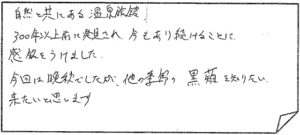 自然と共にある温泉旅館!
300年以上前に発見され、今もあり続けることに、
感銘をうけました。
今回は晩秋でしたが、他の季節の黒薙を知りたい、
来たいと思います